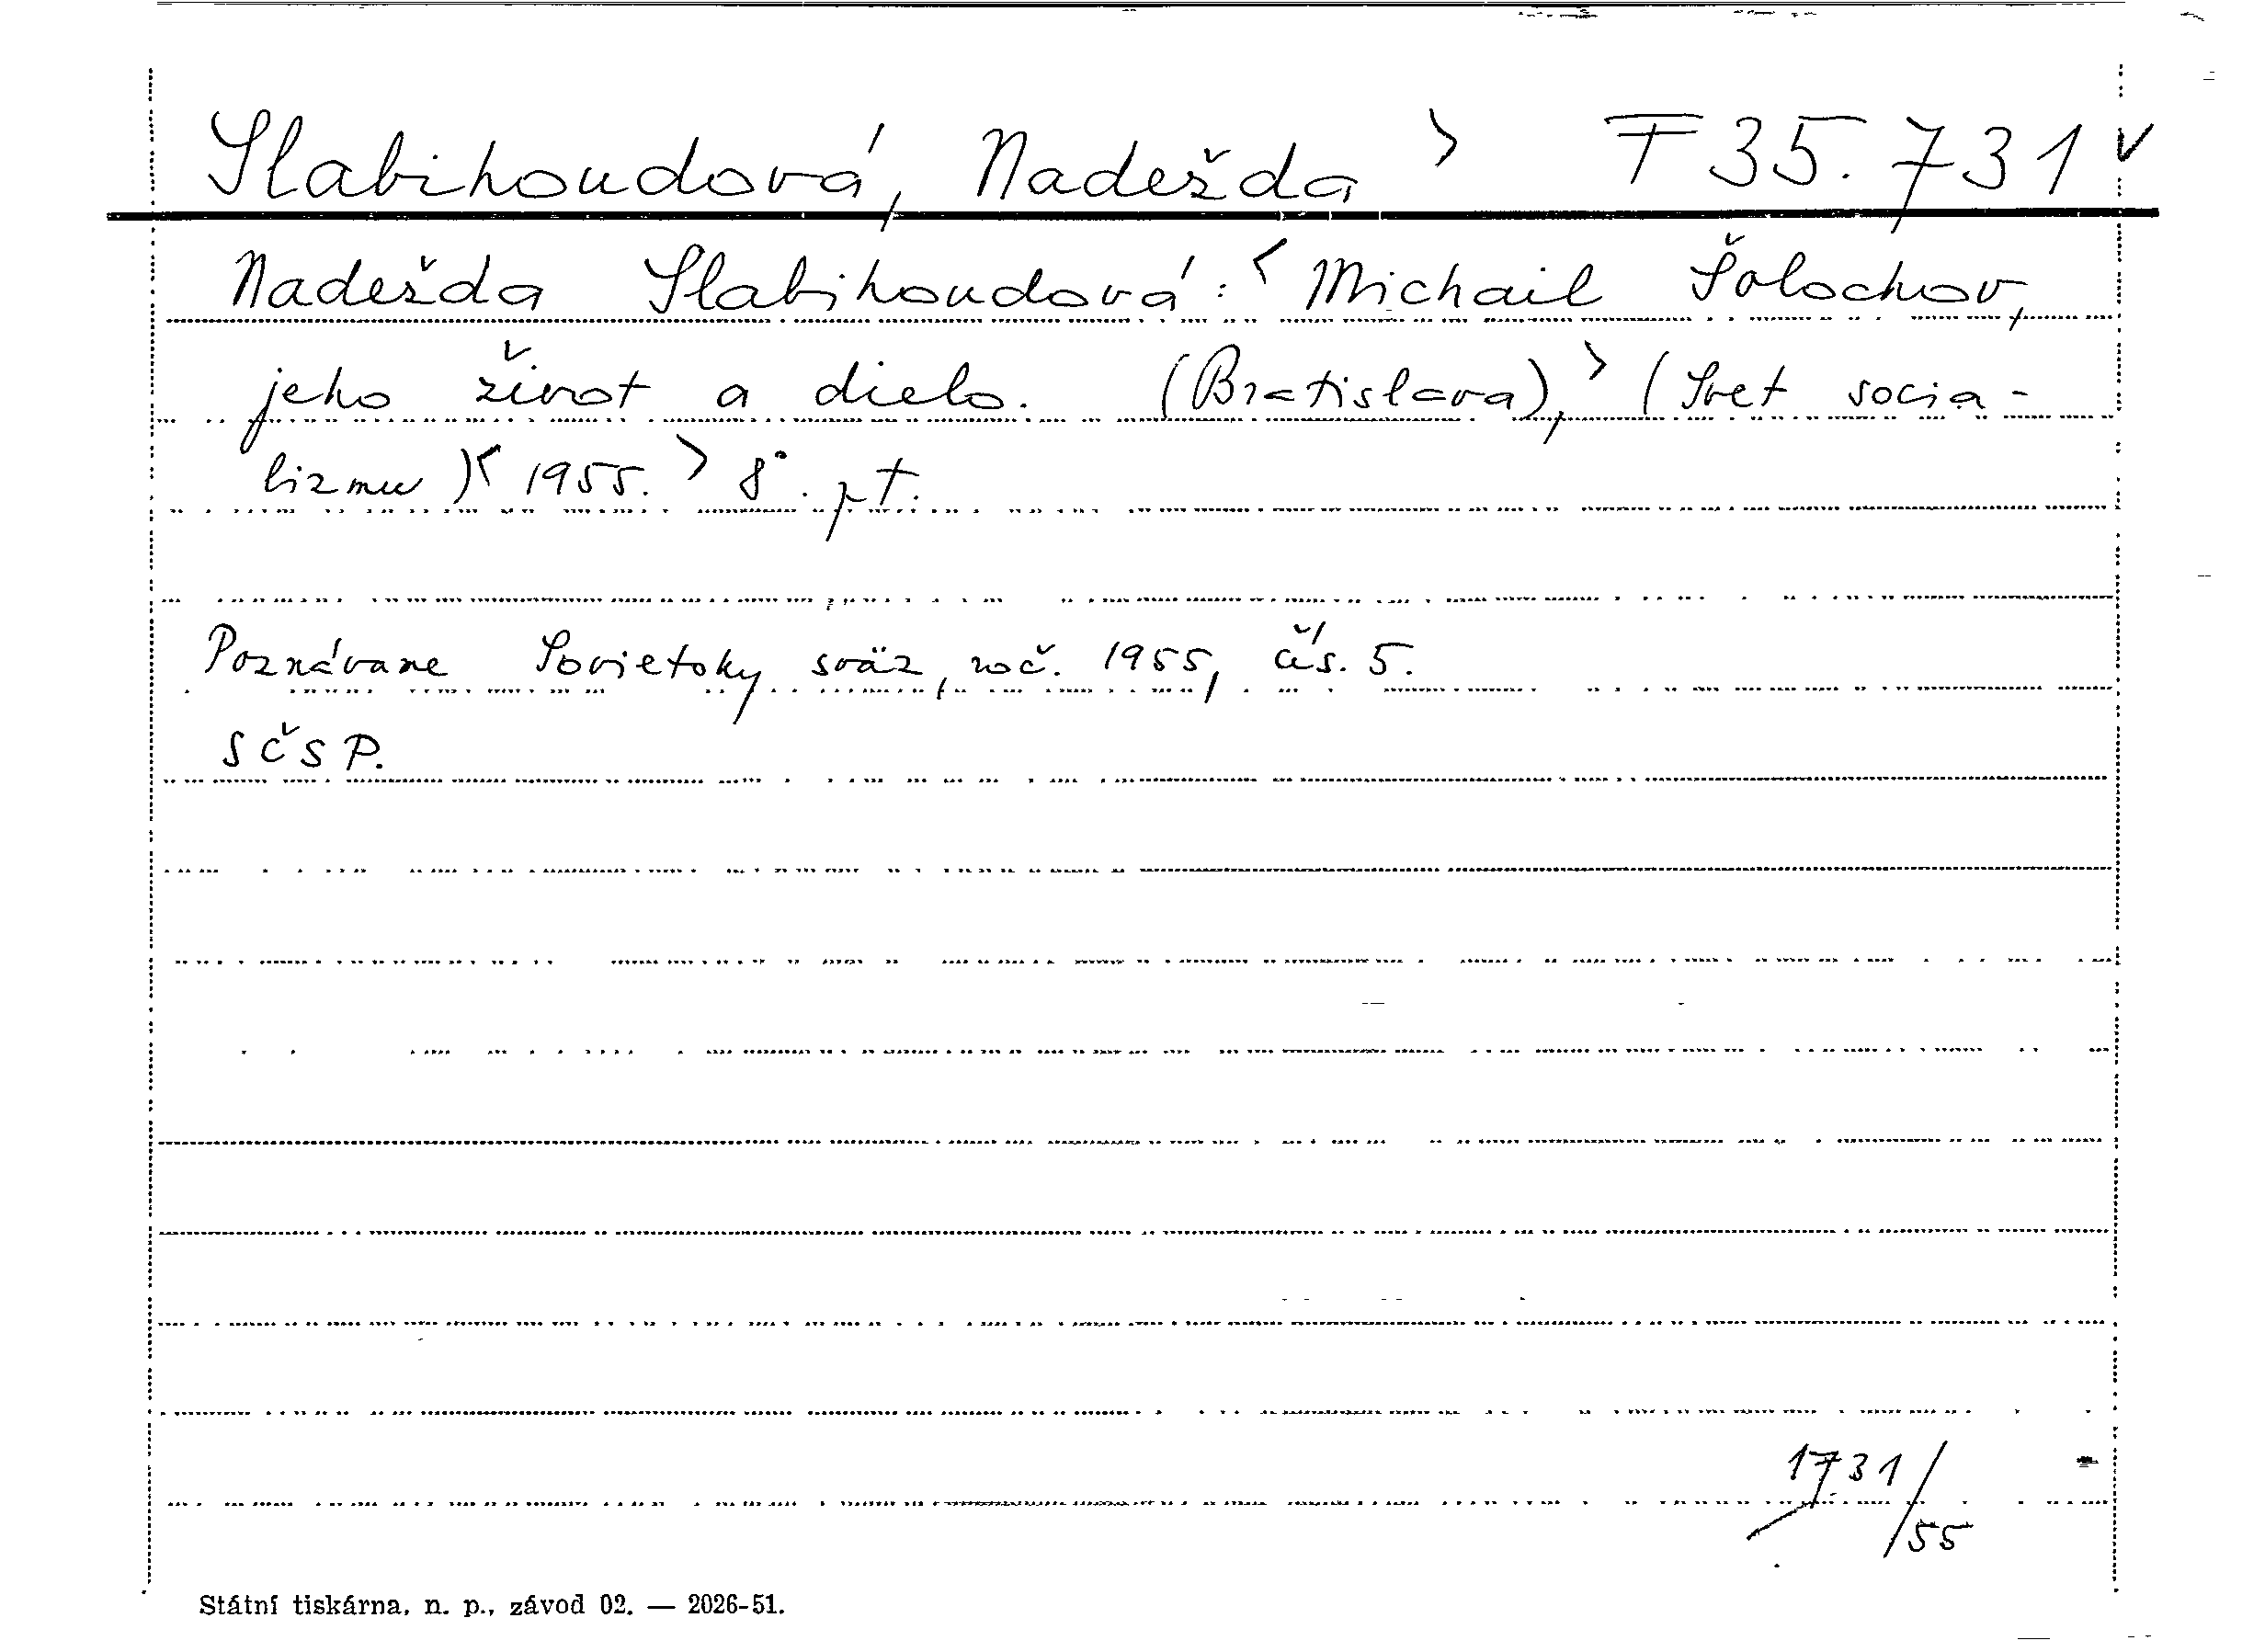 Slabihoudová, Nadežda > F 35.731 v
Nadežda Slabihoudová: < Michail Šolochov,
jeho život a dielo. (Bratislava), > (Svet socia-
lizmu) < 1955. > 8°. pt.
Poznávame Sovietsky sväz, roč. 1955, čís. 5.
SČSP.
1731/
55
Státní tiskárna, n. p., závod 02. — 2026-51.